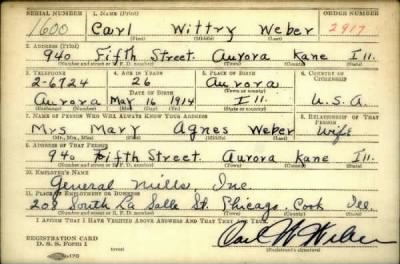 SERIAL NUMBER 1. NAME (Print) ORDER NUMBER
1600 Carl Wittry Weber 2917
(First) (Middle) (Last)
2. ADDRESS (Print)
940 Fifth Street. Aurora Kane Ill.
(Number and street or R. F. D. number) (Town) (County) (State)
3. TELEPHONE 4. AGE IN YEARS 5. PLACE OF BIRTH 6. COUNTRY OF CITIZENSHIP
2-6724 26 Aurora
DATE OF BIRTH (Town or county)
Aurora May 16 1914 Ill. U.S.A.
(Exchange) (Number) (Mo.) (Day) (Yr.) (State or country)
7. NAME OF PERSON WHO WILL ALWAYS KNOW YOUR ADDRESS 8. RELATIONSHIP OF THAT PERSON
Mrs Mary Agnes Weber Wife
(Mr., Mrs., Miss) (First) (Middle) (Last)
9. ADDRESS OF THAT PERSON
940 Fifth Street. Aurora Kane Ill.
(Number and street or R. F. D. number) (Town) (County) (State)
10. EMPLOYER'S NAME
General Mills, Inc.
11. PLACE OF EMPLOYMENT OR BUSINESS
208 South La Salle St. Chicago. Cook Ill.
(Number and street or R. F. D. number) (Town) (County) (State)
I AFFIRM THAT I HAVE VERIFIED ABOVE ANSWERS AND THAT THEY ARE TRUE.
REGISTRATION CARD
D. S. S. Form 1 Carl W Weber
(Registrant's signature)